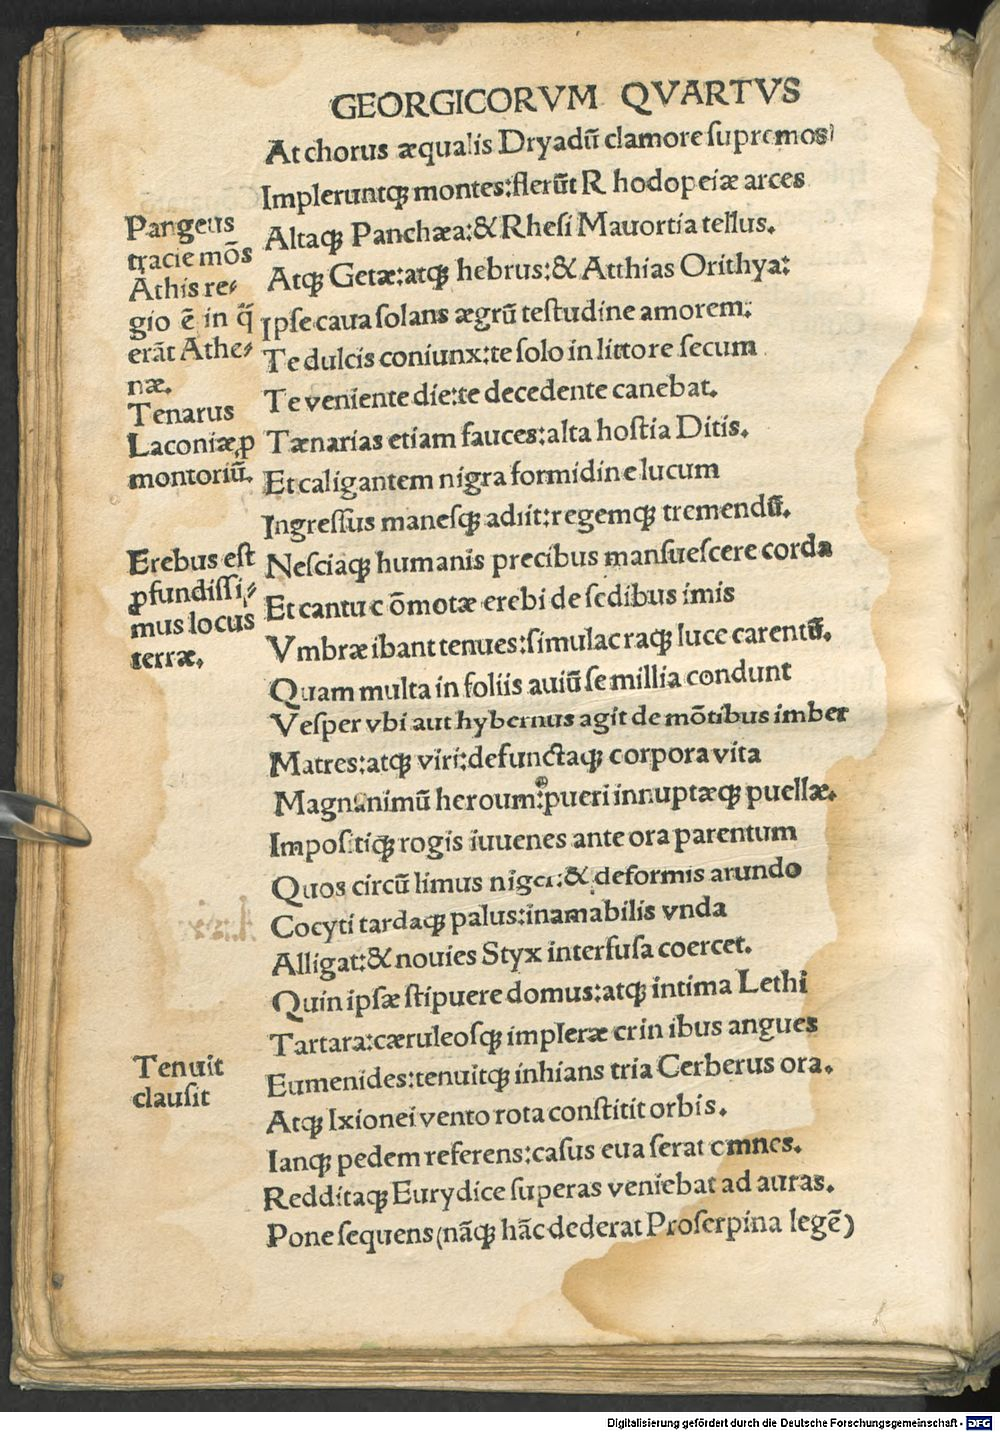 GEORGICORVM QVARTVS
At chorus æqualis Dryadū clamore ſupremos
Impleruntqꝫ montes:flerūt Rhodopeiæ arces
Altaqꝫ Panchæa:& Rheſi Mauortia tellus.
Atqꝫ Getæ:atqꝫ hebrus:& Atthias Orithya:
Ipſe caua ſolans ægrū teſtudine amorem:
Te dulcis coniunx:te ſolo in littore ſecum
Te veniente die:te decedente canebat.
Tænarias etiam fauces:alta hoſtia Ditis.
Et caligantem nigra formidine lucum
Ingreſſus maneſqꝫ adiit:regemqꝫ tremendū.
Neſciaqꝫ humanis precibus manſueſcere corda
Et cantu cōmotæ erebi de ſedibus imis
Vmbræ ibant tenues:ſimulacraqꝫ luce carentū.
Quam multa in foliis auiū ſe millia condunt
Veſper vbi aut hybernus agit de mōtibus imber
Matres:atqꝫ viri:defunctaqꝫ corpora vita
Magnanimū heroum:pueri innuptæqꝫ puellæ.
Impoſitiqꝫ rogis iuuenes ante ora parentum
Quos circū limus niger:& deformis arundo
Cocyti tardaqꝫ palus:inamabilis vnda
Alligat:& nouies Styx interfuſa coercet.
Quin ipſæ ſtipuere domus:atqꝫ intima Lethi
Tartara:cæruleoſqꝫ impleræ crinibus angues
Eumenides:tenuitqꝫ inhians tria Cerberus ora.
Atqꝫ Ixionei vento rota conſtitit orbis.
Ianqꝫ pedem referens:caſus euaſerat omnes.
Redditaqꝫ Eurydice ſuperas veniebat ad auras.
Pone ſequens (nāqꝫ hāc dederat Proſerpina legē)
Pangeus
tracie mōs
Athis re⸗
gio ē in q̄
erāt Athe⸗
næ.
Tenarus
Laconiæ ꝓ
montoriū.
Erebus eſt
ꝓfundiſſi⸗
mus locus
terræ.
Tenuit
clauſit
Digitalisierung gefördert durch die Deutsche Forschungsgemeinschaft - DFG